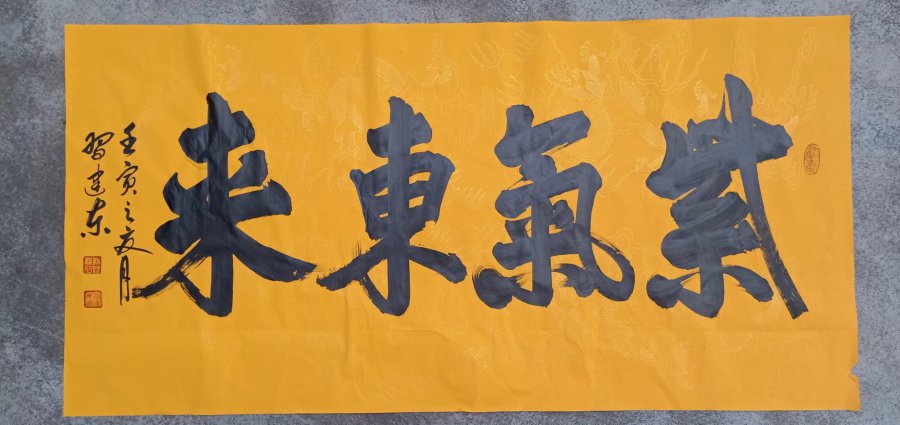 紫氣東来
壬寅之夏月
習建东